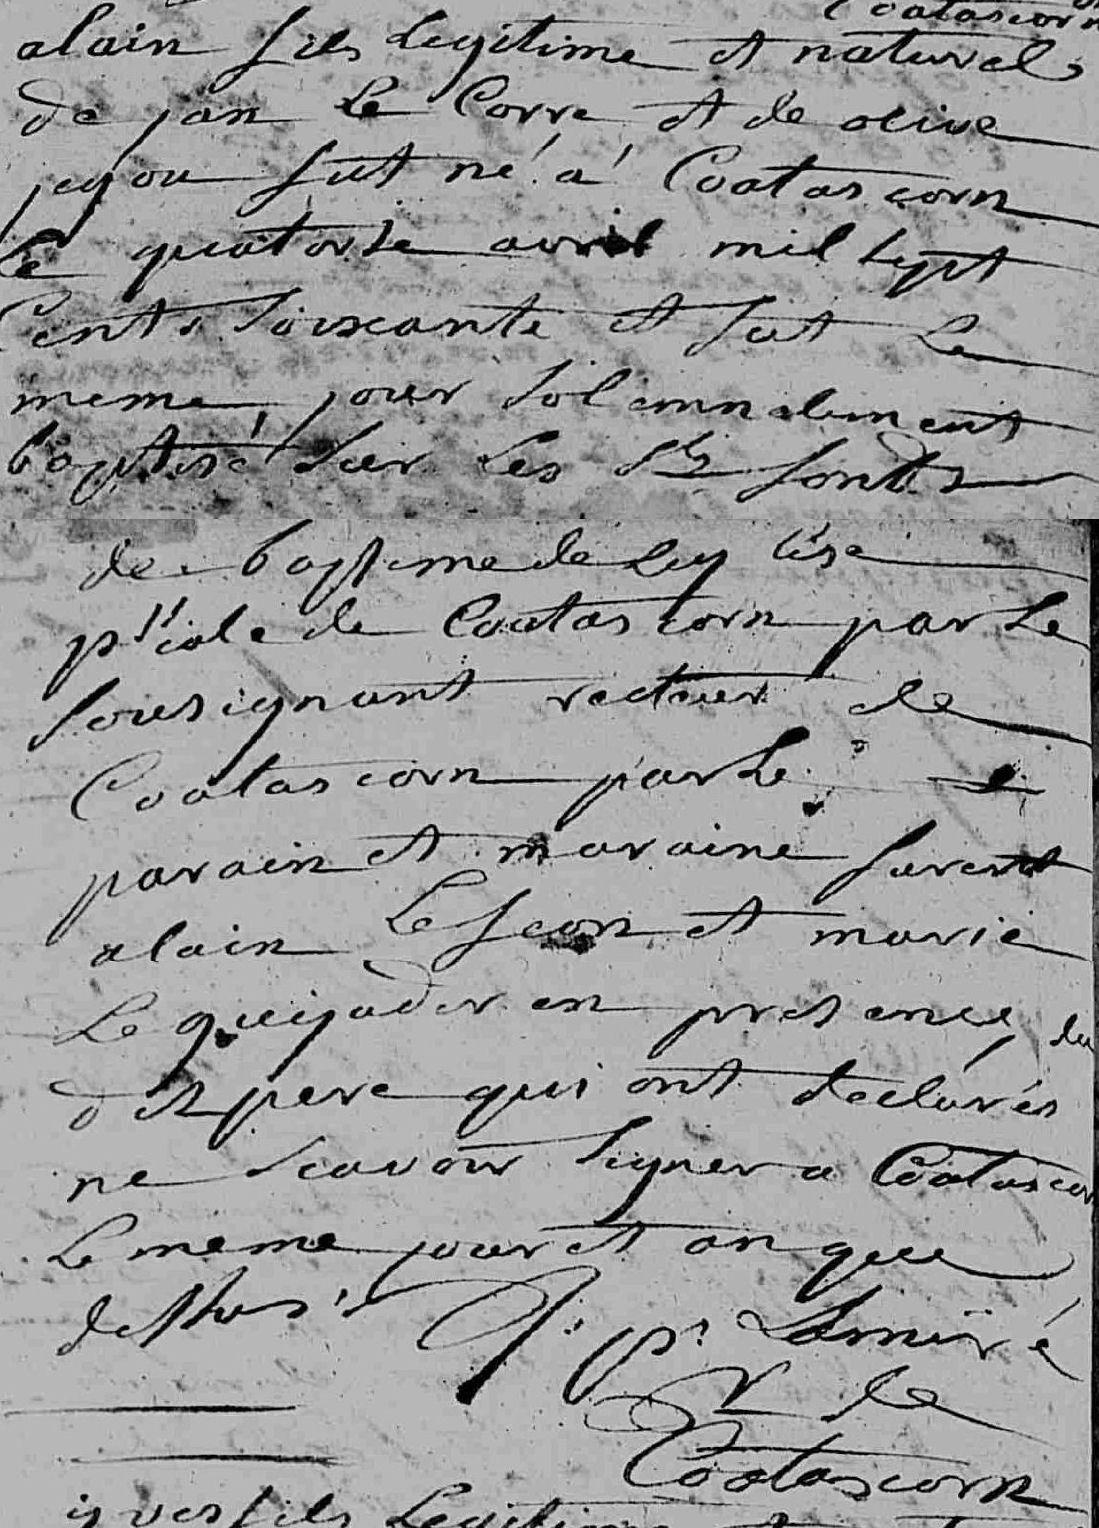 Coatascorn
alain fils Legitime et naturel
de jan Le Corre et de olive
jeqou fut né a Coatascorn
Le quatorse avril mil sept
Cents soixante et fut Le
meme jour solemnelement
baptisé sur Les sts fonds
de bapteme de Leglise
p'iale de Coatascorn par Le
sousignant recteur de
Coatascorn par Le
parain et maraine furent
alain Le scon et marie
Le en presence du
dit pere qui ont declarés
ne scavoir signer a Coatascor
Le meme jour et an que
dessus
R de
Coatascorn
yves fils Legitime et